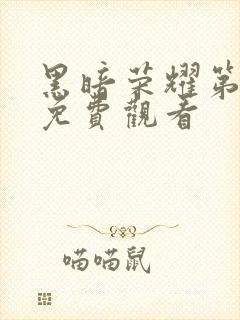 黑暗荣耀第
免費觀看
喵喵鼠